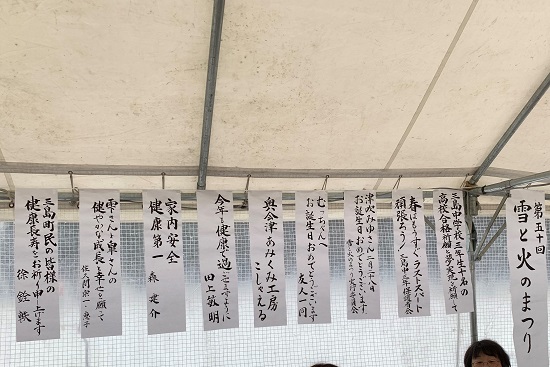 第五十回
雪と火のまつり
三島中学校三年生十名の
高校合格祈願と夢の実現を祈願して
春はもうすぐラストスパート
頑張ろう!
三島中三年保護者会
津久みゆさん二月二十八日
お誕生日おめでとうございます
むっちゃんへ
お誕生日おめでとうございます
友人一同
奥会津あみくみ工房
こしぇる
今年も健康で過ごせますように
田上敏明
家内安全
健康第一
森 建介
雫さんと皐さんの
健やかな成長と幸せを願って
三島町民の皆様の
健康長寿をお祈り申し上げます
徐 銓 軼